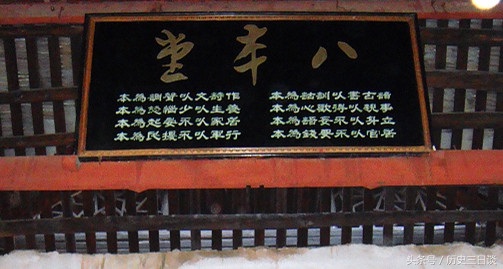 八本堂
讀古書以訓詁為本
事親以得歡心為本
立身以不妄語為本
居官以不要錢為本
作詩文以聲調為本
養生以少惱怒為本
居家以不晏起為本
行軍以不擾民為本
头条号 / 历史三日谈